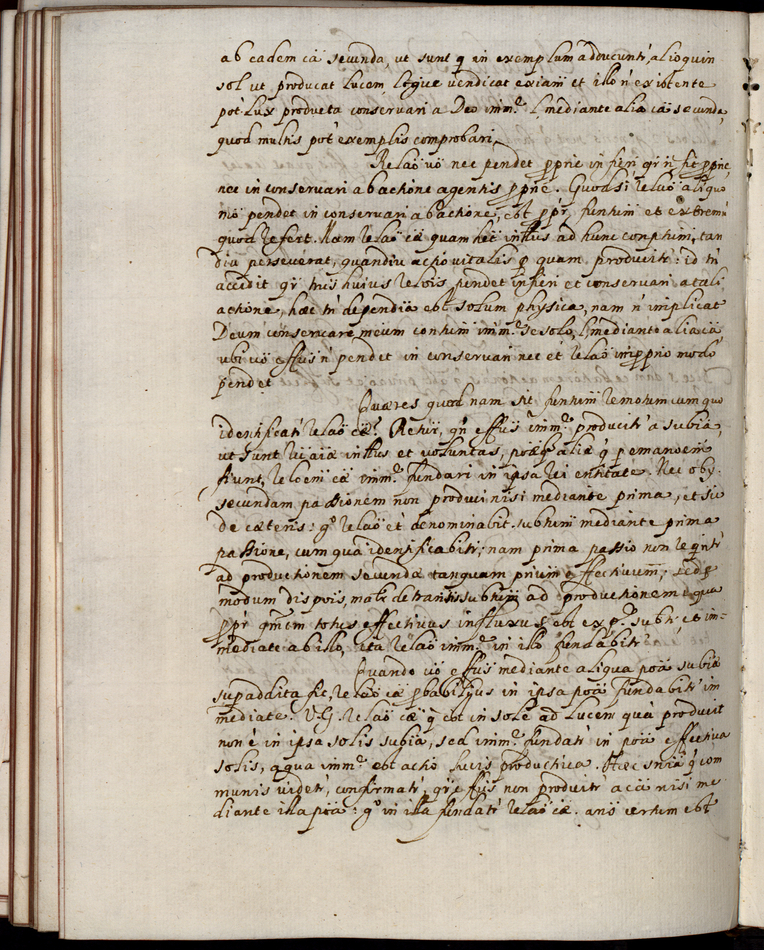 ab eadem cā secunda, ut sunt q̄ in exemplum adducunt', alioquin
sol ut producat lucem, lẽque vendicat exiam et illo n̄ existente
pot' lux producta conservari a Deo imm.e l, mediante alia cā secunda,
quod multis pot' exemplis comprobari.
Relaõ vō nec pendet pp̄rie in fieri qr̄ n̄ fit pp̄rie,
nec in conservari ab actione agentis pp̄rie. Quod si relaõ aliquo
mō pendet in conservari ab actione, est pp̄r funtum et extremū
quod refert. Nam relaõ cæ quam het inttus ad hunc conptum, tan
diu perseverat, quandiu actio vitalis p quam producitr̄: id tn̄
accidit qr̄ trīus huius relõis pendet in fieri et conservari a tali
actione, hæc tn̄ dependīa est solum physica, nam n̄ implicat
Deum conservare meum contum imm.e se solo, l, mediante alia cā
ubi vō effus n̄ pendet in conservari nec et relaõ impp̄rio modo
pendet
Quæres quod nam sit funtum remotum cum quo
identificatr̄ relaõ cæ? Retur, qn̄ effus imm.e producitr̄ a subīa,
ut sunt in aīa inttus et voluntas, poæq; aliæ q̄ p emanoēm
fiunt, reloēm cæ imm.e fundari in ipsa rei entitate. Nec obst.
secundam passionem non produci nisi mediante prima, et sic
de cæteris: g.o relaõ et denominabit subtum mediante prima
passione, cum qua identificabitr̄; nam prima passio non reqritr̄
ad productionem secundæ tanquam prium effectivum, sed p
modum disp̄ois, mālr̄ determantis subtum ad productionem e qua
pp̄r qm̄cm totus effectivus influxus est ex p.e subti et im=
mediate ab illo, ita relaõ imm.e in illo fundabitr̄.
Quando vō effus mediante aliqua poā subīæ
supaddita fit, relaõ cæ pbabilius in ipsa poā fundabitr̄ im
mediate. V.G. relaõ cæ q̄ est in sole ad lucem quā producit
non ē in ipsa solis subīa, sed imm.e fundatr̄ in poā effectiva
solis, a qua imm.e est actio lucis productiva. Hæc sn̄ia q̄ com
munis videtr̄, confirmatr̄, qr̄ effus non producitr̄ a cā nisi me
diante illa poā: g.o in illa fundatr̄ relaõ cæ. ans̄ certum est